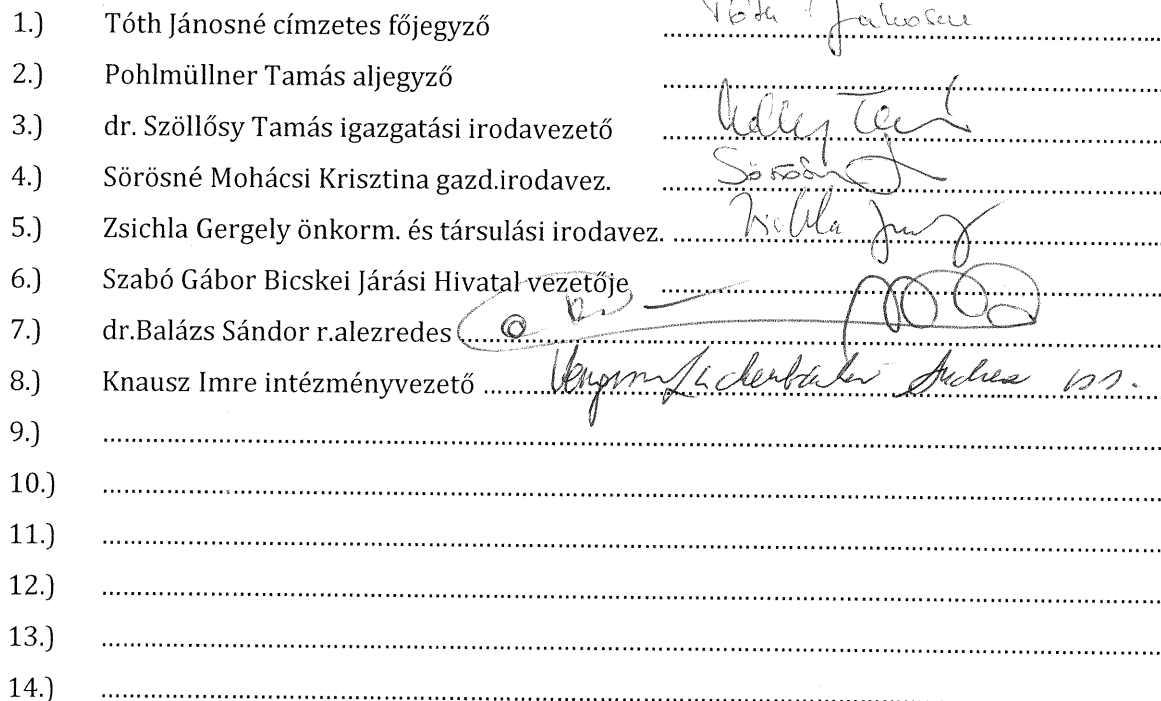 1.) Tóth Jánosné címzetes főjegyző Tóth Jánosné
2.) Pohlmüllner Tamás aljegyző
3.) dr. Szöllősy Tamás igazgatási irodavezető
4.) Sörösné Mohácsi Krisztina gazd.irodavez.
5.) Zsichla Gergely önkorm. és társulási irodavez. Zsichla
6.) Szabó Gábor Bicskei Járási Hivatal vezetője
7.) dr.Balázs Sándor r.alezredes
8.) Knausz Imre intézményvezető
9.)
10.)
11.)
12.)
13.)
14.)